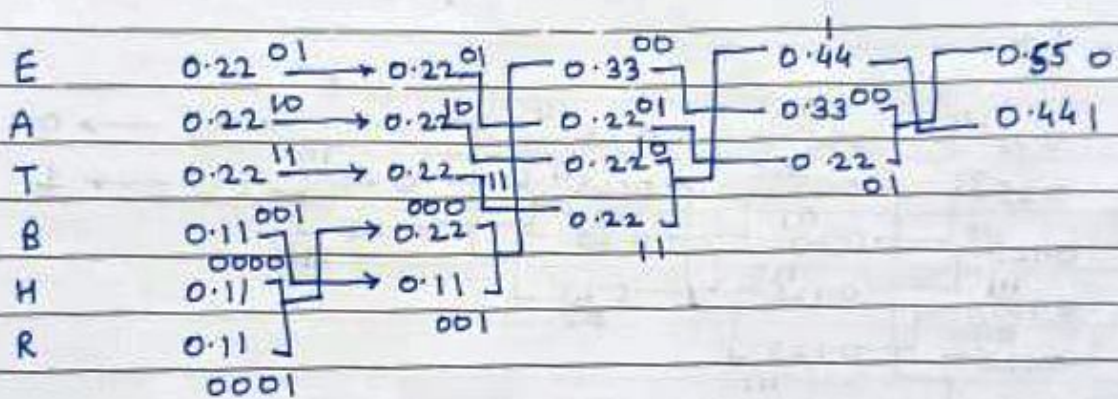 1
E 0.22 01 0.22 01 0.33 00 0.44 0.55 0
A 0.22 10 0.22 10 0.22 01 0.33 00 0.44 1
T 0.22 11 0.22 11 0.22 10 0.22 01
B 0.11 001 0.22 000 0.22 11
H 0.11 0000 0.11 001
R 0.11 0001